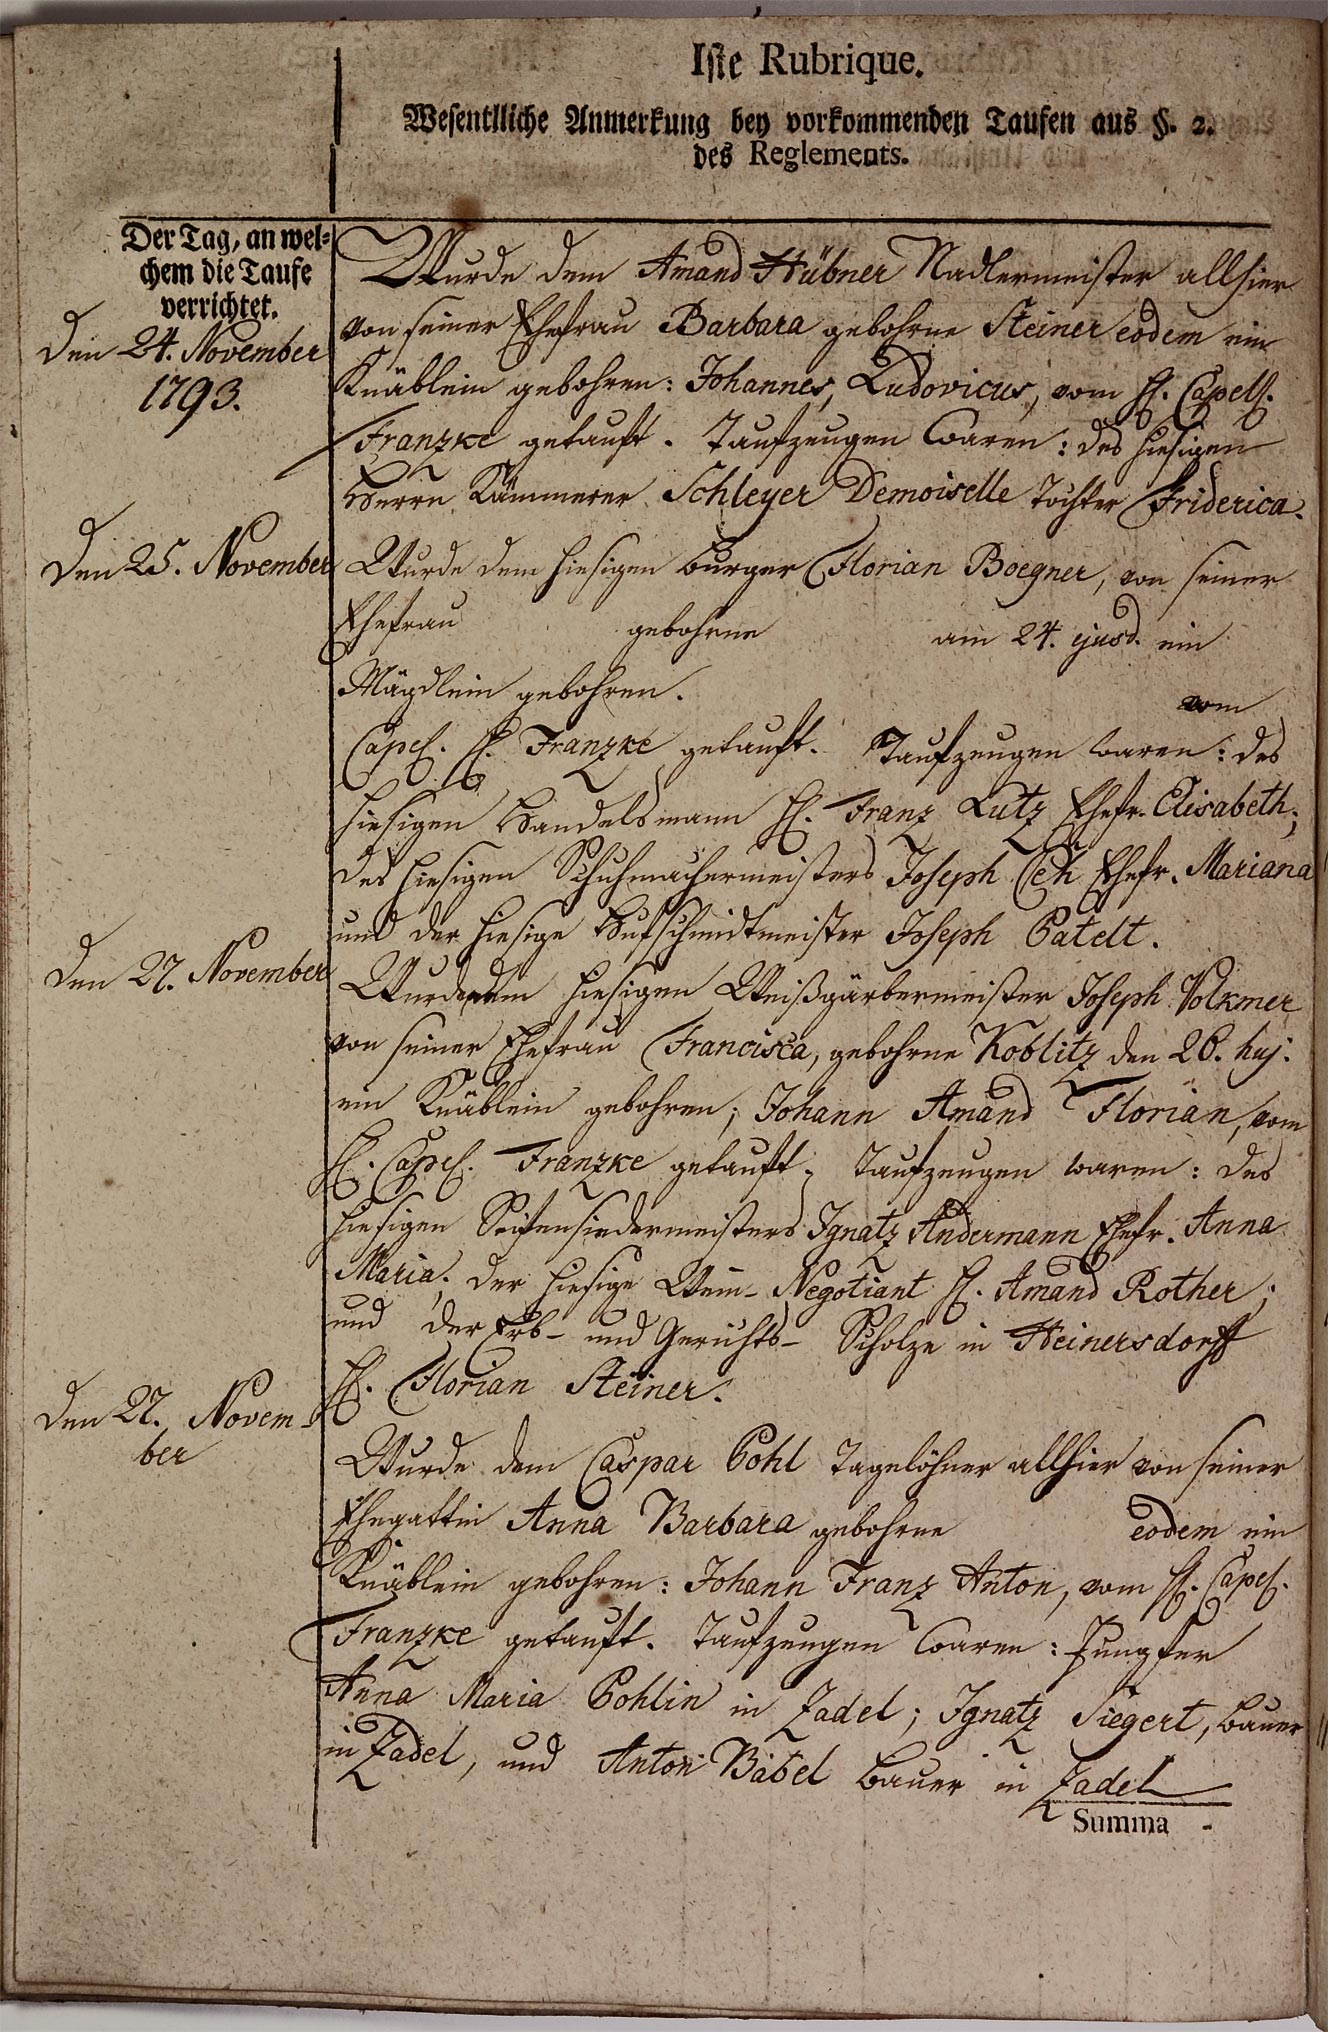 Iste Rubrique.
Wesentlliche Anmerkung bey vorkommenden Taufen aus §. 2.
des Reglements.
Der Tag, an wel-
chem die Taufe
verrichtet.
Den 24. November
1793.
Wurde dem Amand Hübner Nadlermeister allhier
von seiner Ehefrau Barbara gebohrne Steiner eodem ein
Knäblein gebohren: Johannes, Ludovicus, vom H. Capell.
Franzke getauft. Taufzeugen waren: des hiesigen
Herrn Kämmerer Schleyer Demoiselle Tochter Friderica.
Den 25. November
Wurde dem hiesigen burger Florian Boegner, von seiner
Ehefrau gebohrne am 24. ejusd. ein
Mägdlein gebohren. vom
Capel. H. Franzke getauft. Taufzeugen waren: des
hiesigen Handelsmann H. Franz Lutz Ehefr. Elisabeth;
des hiesigen Schuhmachermeisters Joseph Ceh Ehefr. Mariana
und der hiesige Hufschmidtmeister Joseph Patelt.
Den 27. November
Wurde dem hiesigen Weißgärbermeister Joseph Volkmer
von seiner Ehefrau Francisca, gebohrne Koblitz den 26. huj:
ein Knäblein gebohren; Johann Amand Florian, vom
H. Capel. Franzke getauft; Taufzeugen waren: des
hiesigen Seifensiedermeisters Ignatz Andermann Ehefr. Anna
Maria; der hiesige Wein-Negotiant H. Amand Rother;
und der Erb- und Gerichts-Scholze in Heinersdorff
H. Florian Steiner.
Den 27. Novem-
ber
Wurde dem Caspar Pohl Tagelöhner allhier von seiner
Ehegattin Anna Barbara gebohrne eodem ein
Knäblein gebohren: Johann Franz Anton, vom H. Capel.
Franzke getauft. Taufzeugen waren: Jungfer
Anna Maria Pohlin in Zadel; Ignatz Siegert, bauer
in Zadel, und Anton Babel bauer in Zadel
Summa -